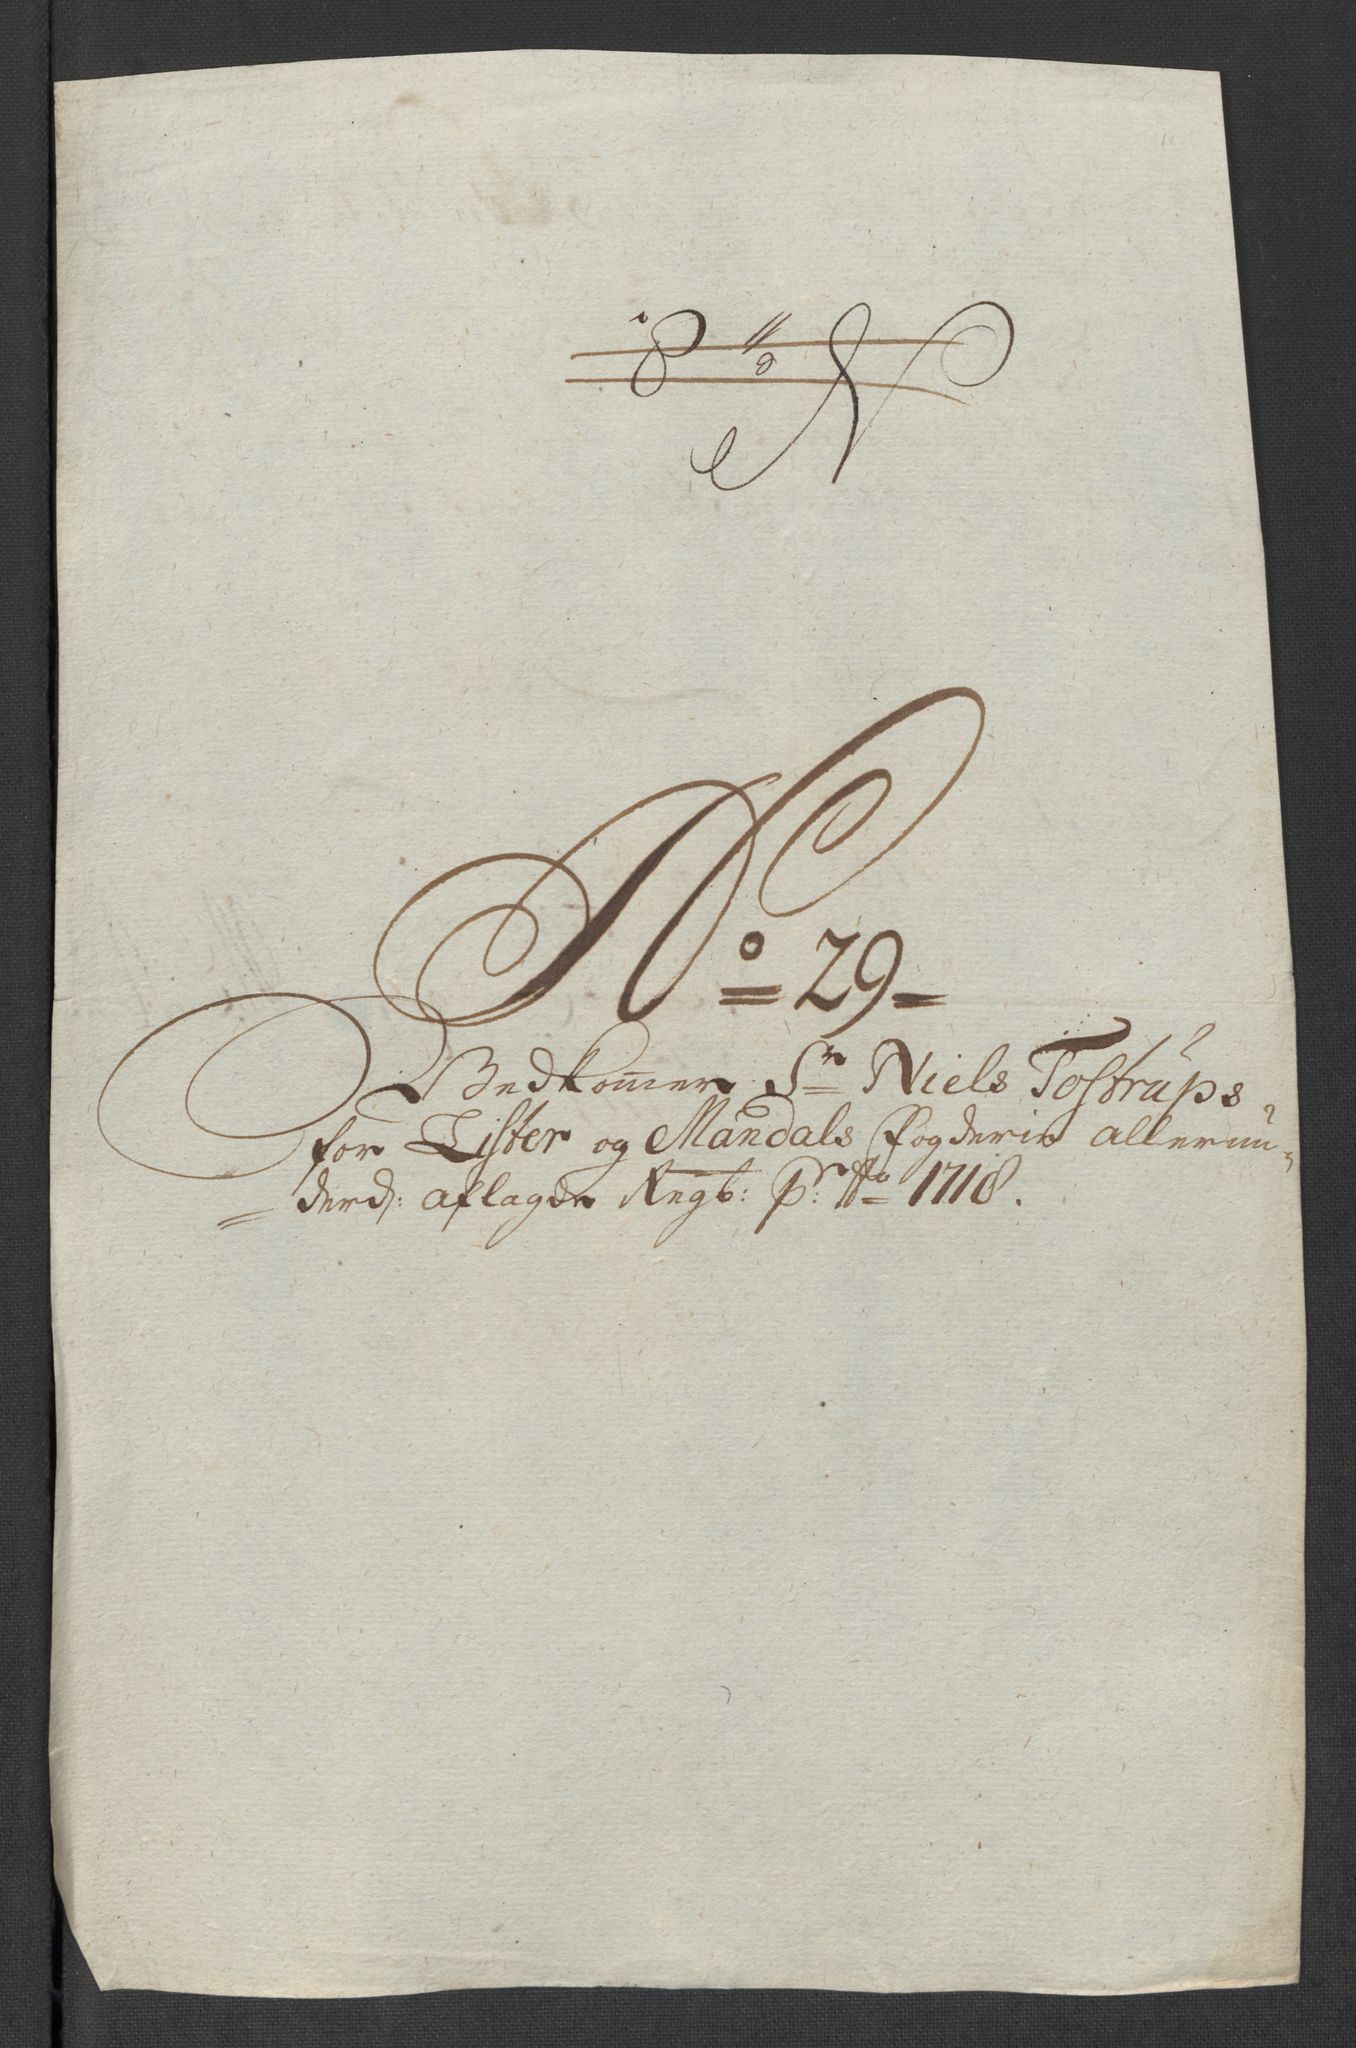 No 29
Vedkommer Sr Niels Tostrups
for Lister og Mandals Fogderie allerun-
derd: aflagde Regb: pr: Ao 1718.